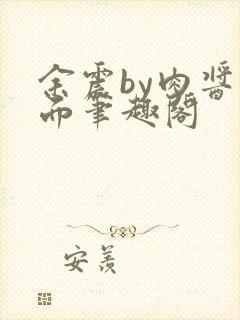 余震by肉酱
而笔趣阁
安羡